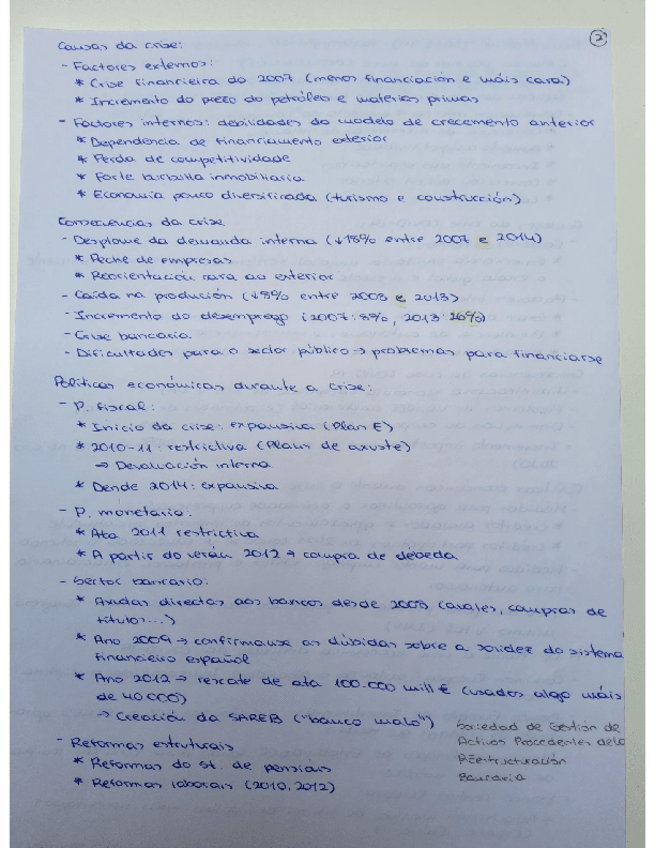 2
Causas da crise:
- Factores externos:
* Crise financieira do 2007 (menos financiación e máis cara)
* Incremento do prezo do petróleo e materias primas
- Factores internos: debilidades do modelo de crecemento anterior
* Dependencia de financiamento exterior
* Perda de competitividade
* Forte burbulla inmobiliaria
* Economía pouco diversificada (turismo e construcción)
Consecuencias da crise
- Desplome da demanda interna (↓18% entre 2007 e 2014)
* Peche de empresas
* Reorientación cara ao exterior
- Caída na produción (↓8% entre 2008 e 2013)
- Incremento do desemprego (2007: 8%, 2013 26%)
- Crise bancaria.
- Dificultades para o sector público → problemas para financiarse
Políticas económicas durante a crise:
- P. fiscal:
* Inicio da crise: expansiva (Plan E)
* 2010-11: restrictiva (Plans de axuste)
⇒ Devaluación interna
* Dende 2014: expansiva
- P. monetaria:
* Ata 2011 restrictiva
* A partir do verán 2012 → compra de débeda
- Sector bancario:
* Axudas directas aos bancos desde 2008 (avales, compras de
títulos...)
* Ano 2009 → confírmanse as dúbidas sobre a solidez do sistema
financieiro español
* Ano 2012 → rescate de ata 100.000 mill € (usados algo máis
de 40.000)
→ Creación da SAREB ("banco malo")
Sociedad de Gestión de
Activos Procedentes de la
REestructuración
Bancaria
- Reformas estruturais
* Reformas do st. de pensiois
* Reformas laborais (2010, 2012)